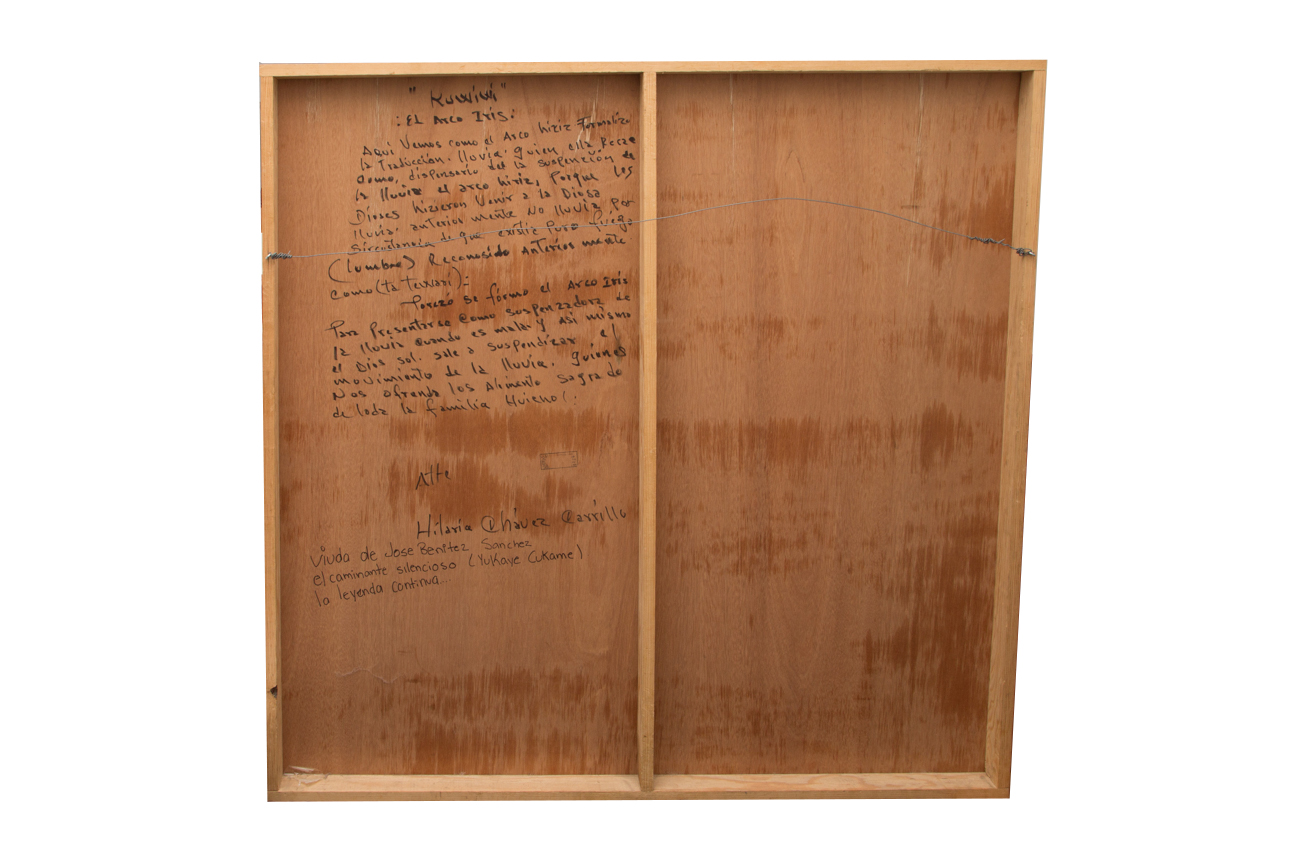 "Kuwiwi"
: EL Arco Iris:
Aqui Vemos como el Arco hiriz Formaliza
la Traducción. lluvia. quien ella Recae
Como, dispensario del la suspención de
la lluvia el arco hiriz, Porque los
Dioses hizieron Venir a la Diosa
lluvia. anterios mente No lluvia por
Sircustancia de que existia Puro fuego
(lumbre) Reconosido anterios mente
como (ta tewari):
se fórmo el Arco Iris
Para Presentarse como suspenzadora de
la lluvia cuando es mala. y asi mismo
el Dios sol. sale a suspendizar el
movimiento de la lluvia. quienes
Nos ofrenda los Alimento Sagrado
de toda la familia
Atte
Hilaria Chávez Carrillo
Viuda de Jose Benitez Sanchez
el caminante silencioso (Yukaye Cukame)
la leyenda continua.